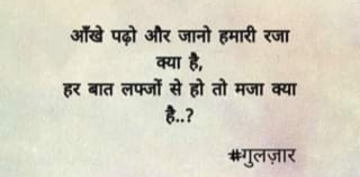 आँखे पढ़ो और जानो हमारी रजा
क्या है,
हर बात लफ्जों से हो तो मजा क्या
है..?
#गुलज़ार